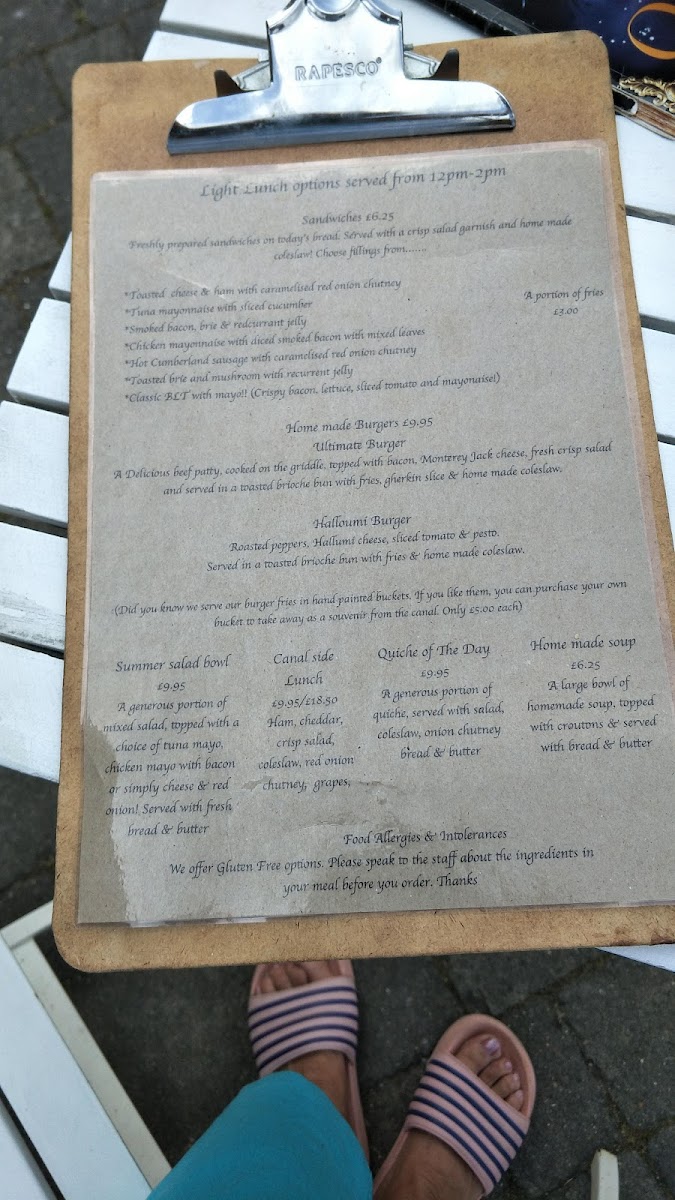 RAPESCO®
Light Lunch options served from 12pm-2pm
Sandwiches £6.25
Freshly prepared sandwiches on today's bread. Served with a crisp salad garnish and home made
coleslaw! Choose fillings from.......
*Toasted cheese & ham with caramelised red onion chutney
*Tuna mayonnaise with sliced cucumber
*Smoked bacon, brie & redcurrant jelly
*Chicken mayonnaise with diced smoked bacon with mixed leaves
*Hot Cumberland sausage with caramelised red onion chutney
*Toasted brie and mushroom with recurrent jelly
*Classic BLT with mayo!! (Crispy bacon, lettuce, sliced tomato and mayonaise!)
A portion of fries
£3.00
Home made Burgers £9.95
Ultimate Burger
A Delicious beef patty, cooked on the griddle, topped with bacon, Monterey Jack cheese, fresh crisp salad
and served in a toasted brioche bun with fries, gherkin slice & home made coleslaw.
Halloumi Burger
Roasted peppers, Hallumi cheese, sliced tomato & pesto.
Served in a toasted brioche bun with fries & home made coleslaw.
(Did you know we serve our burger fries in hand painted buckets. If you like them, you can purchase your own
bucket to take away as a souvenir from the canal. Only £5.00 each)
Summer salad bowl
£9.95
A generous portion of
mixed salad, topped with a
choice of tuna mayo,
chicken mayo with bacon
or simply cheese & red
onion! Served with fresh
bread & butter
Canal side
Lunch
£9.95/£18.50
Ham, cheddar,
crisp salad,
coleslaw, red onion
chutney, grapes,
Quiche of The Day
£9.95
A generous portion of
quiche, served with salad,
coleslaw, onion chutney
bread & butter
Home made soup
£6.25
A large bowl of
homemade soup, topped
with croutons & served
with bread & butter
Food Allergies & Intolerances
We offer Gluten Free options. Please speak to the staff about the ingredients in
your meal before you order. Thanks